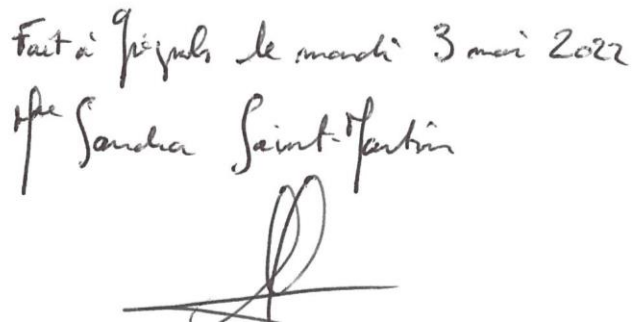 Fait à Grignols le mardi 3 mai 2022
Mme Sandra Saint-Martin